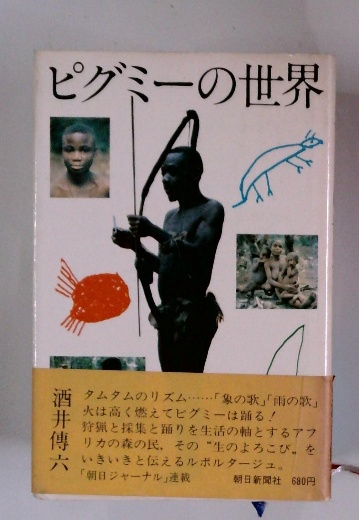 ピグミーの世界
酒井傳六
タムタムのリズム……「象の歌」「雨の歌」
火は高く燃えてピグミーは踊る!
狩猟と採集と踊りを生活の軸とするアフ
リカの森の民，その“生のよろこび”を
いきいきと伝えるルポルタージュ。
「朝日ジャーナル」連載 朝日新聞社 680円